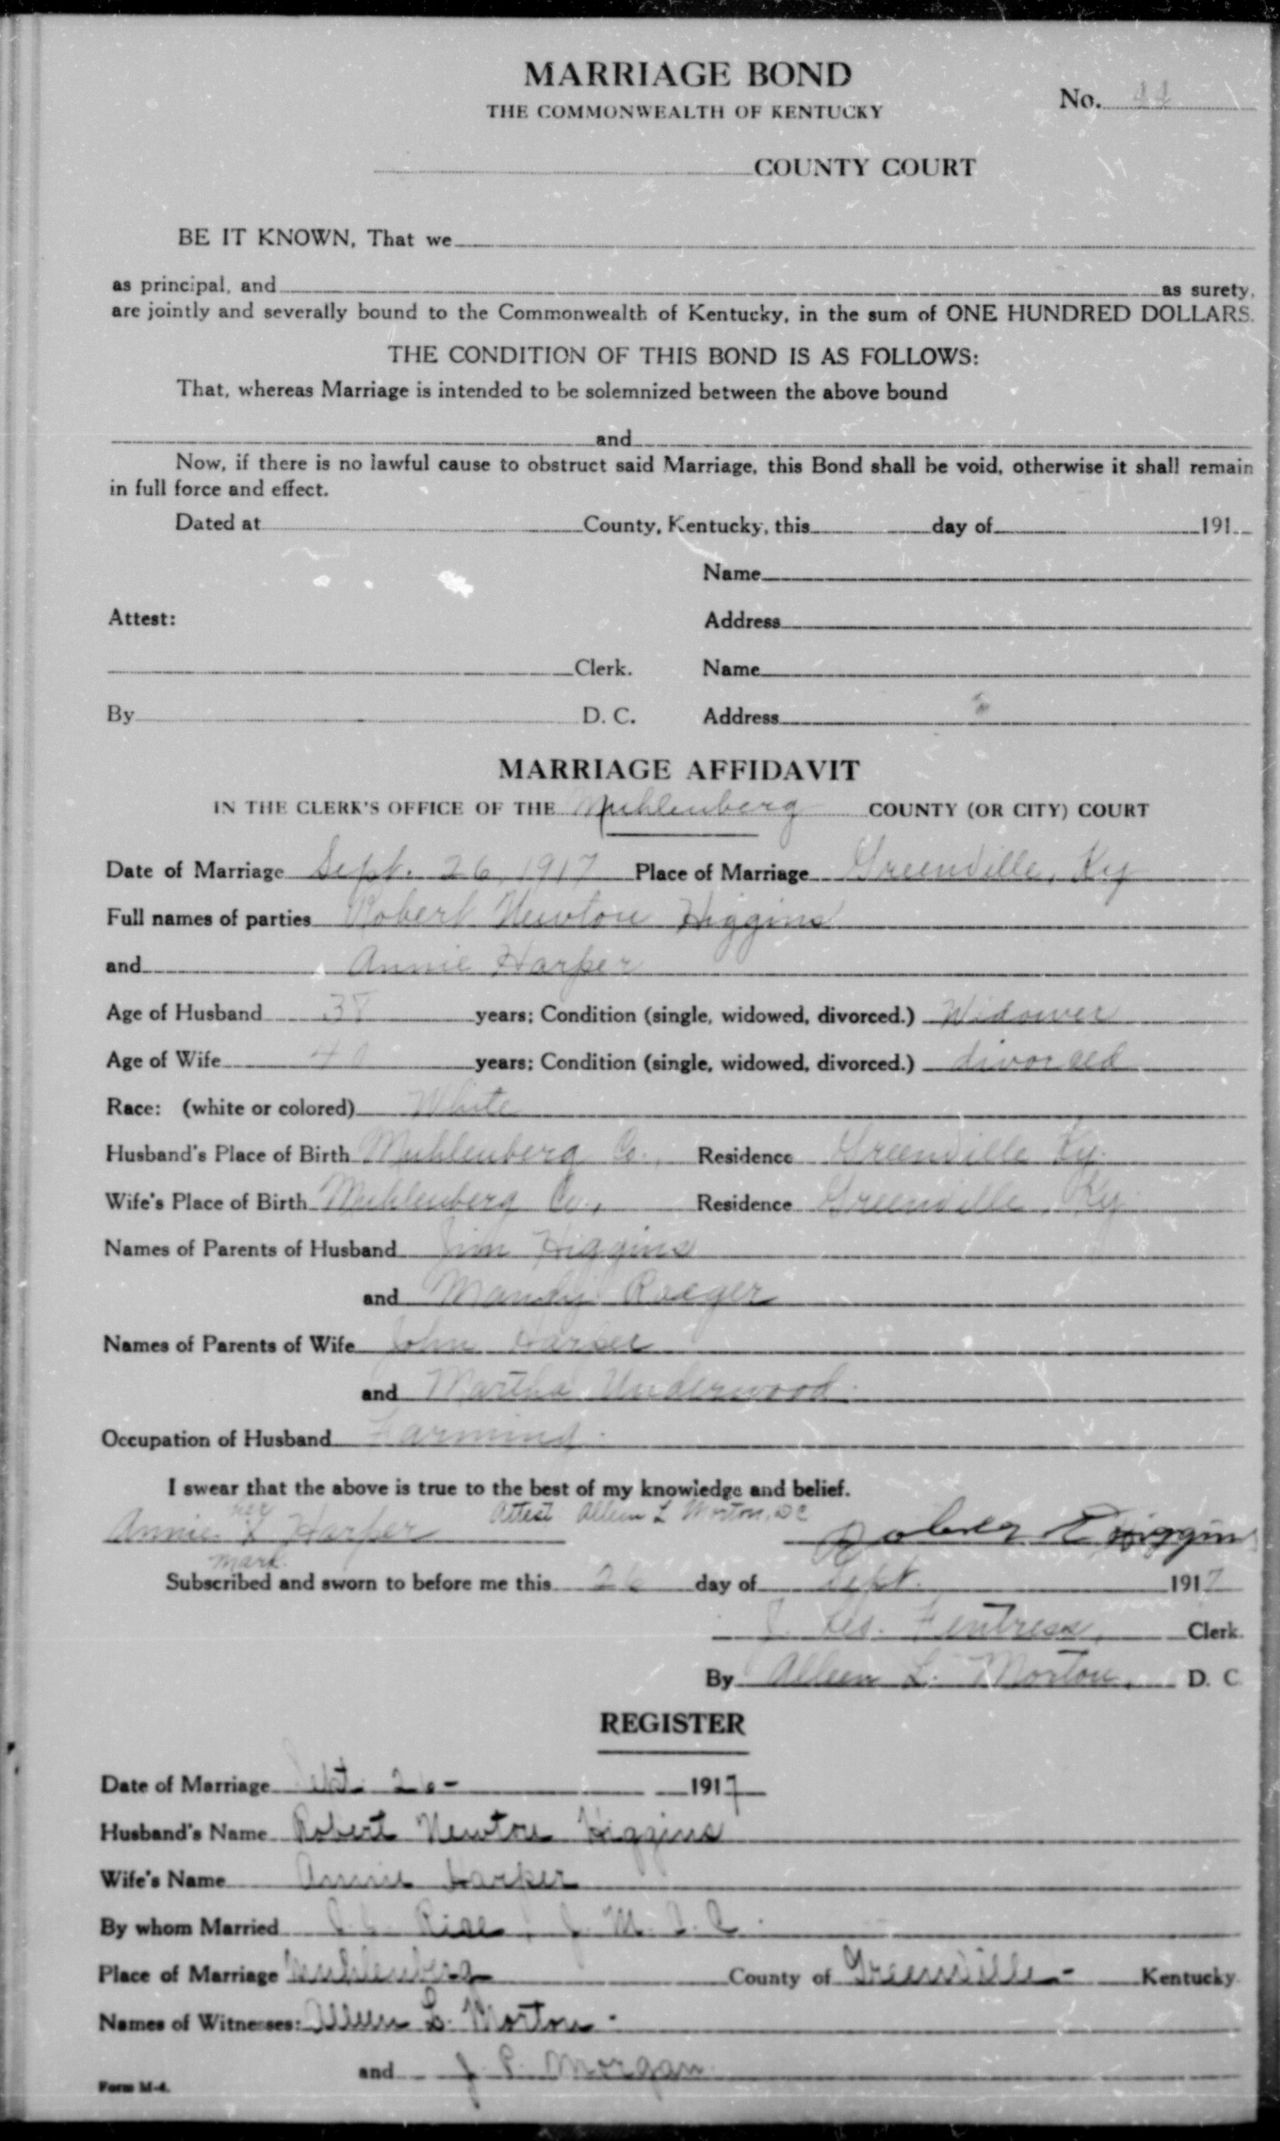 MARRIAGE BOND
THE COMMONWEALTH OF KENTUCKY
No. 44
COUNTY COURT
BE IT KNOWN, That we
as principal, and as surety,
are jointly and severally bound to the Commonwealth of Kentucky, in the sum of ONE HUNDRED DOLLARS.
THE CONDITION OF THIS BOND IS AS FOLLOWS:
That, whereas Marriage is intended to be solemnized between the above bound
and
Now, if there is no lawful cause to obstruct said Marriage, this Bond shall be void, otherwise it shall remain
in full force and effect.
Dated at County, Kentucky, this day of 191
Name
Attest: Address
Clerk. Name
By D. C. Address
MARRIAGE AFFIDAVIT
IN THE CLERK'S OFFICE OF THE Muhlenberg COUNTY (OR CITY) COURT
Date of Marriage Sept. 26, 1917 Place of Marriage Greenville, Ky
Full names of parties Robert Newton Higgins
and Annie Harper
Age of Husband 38 years; Condition (single, widowed, divorced.) Widower
Age of Wife 40 years; Condition (single, widowed, divorced.) divorced
Race: (white or colored) White
Husband's Place of Birth Muhlenberg Co., Residence Greenville Ky.
Wife's Place of Birth Muhlenberg Co., Residence Greenville, Ky
Names of Parents of Husband Jim Higgins
and Mandy Roeger
Names of Parents of Wife John Harper
and Martha Underwood.
Occupation of Husband Farming.
I swear that the above is true to the best of my knowledge and belief.
her Attest Alleen L Morton, DC
Annie X Harper Robert Higgins
mark.
Subscribed and sworn to before me this 26 day of Sept. 1917
J. Fentress, Clerk.
By Alleen L. Morton, D. C.
REGISTER
Date of Marriage Sept. 26- 1917
Husband's Name Robert Newton Higgins
Wife's Name Annie Harper
By whom Married Rice, J. M. C.
Place of Marriage Muhlenberg County of Greenville- Kentucky
Names of Witnesses: Alleen L. Morton-
and J. P. Morgan.
Form M-4.